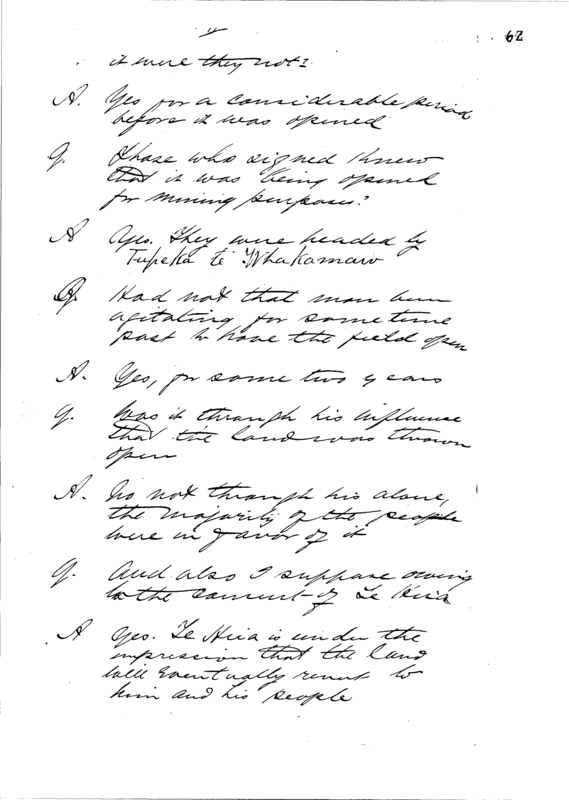 62
"
it were they not?
A. Yes for a considerable period
before it was opened
Q. Those who signed knew
that it was being opened
for mining purposes?
A Yes. They were headed by
Tupeka te Whakamaro
Q. Had not that man been
agitating for some time
past to have the field open
A. Yes, for some two years
Q. Was it through his influence
that the land was thrown
open
A. No not through his alone,
the majority of the people
were in favor of it
Q. And also I suppose owing
to the consent of Te Hira
A Yes. Te Hira is under the
impression that the land
will eventually revert to
him and his people